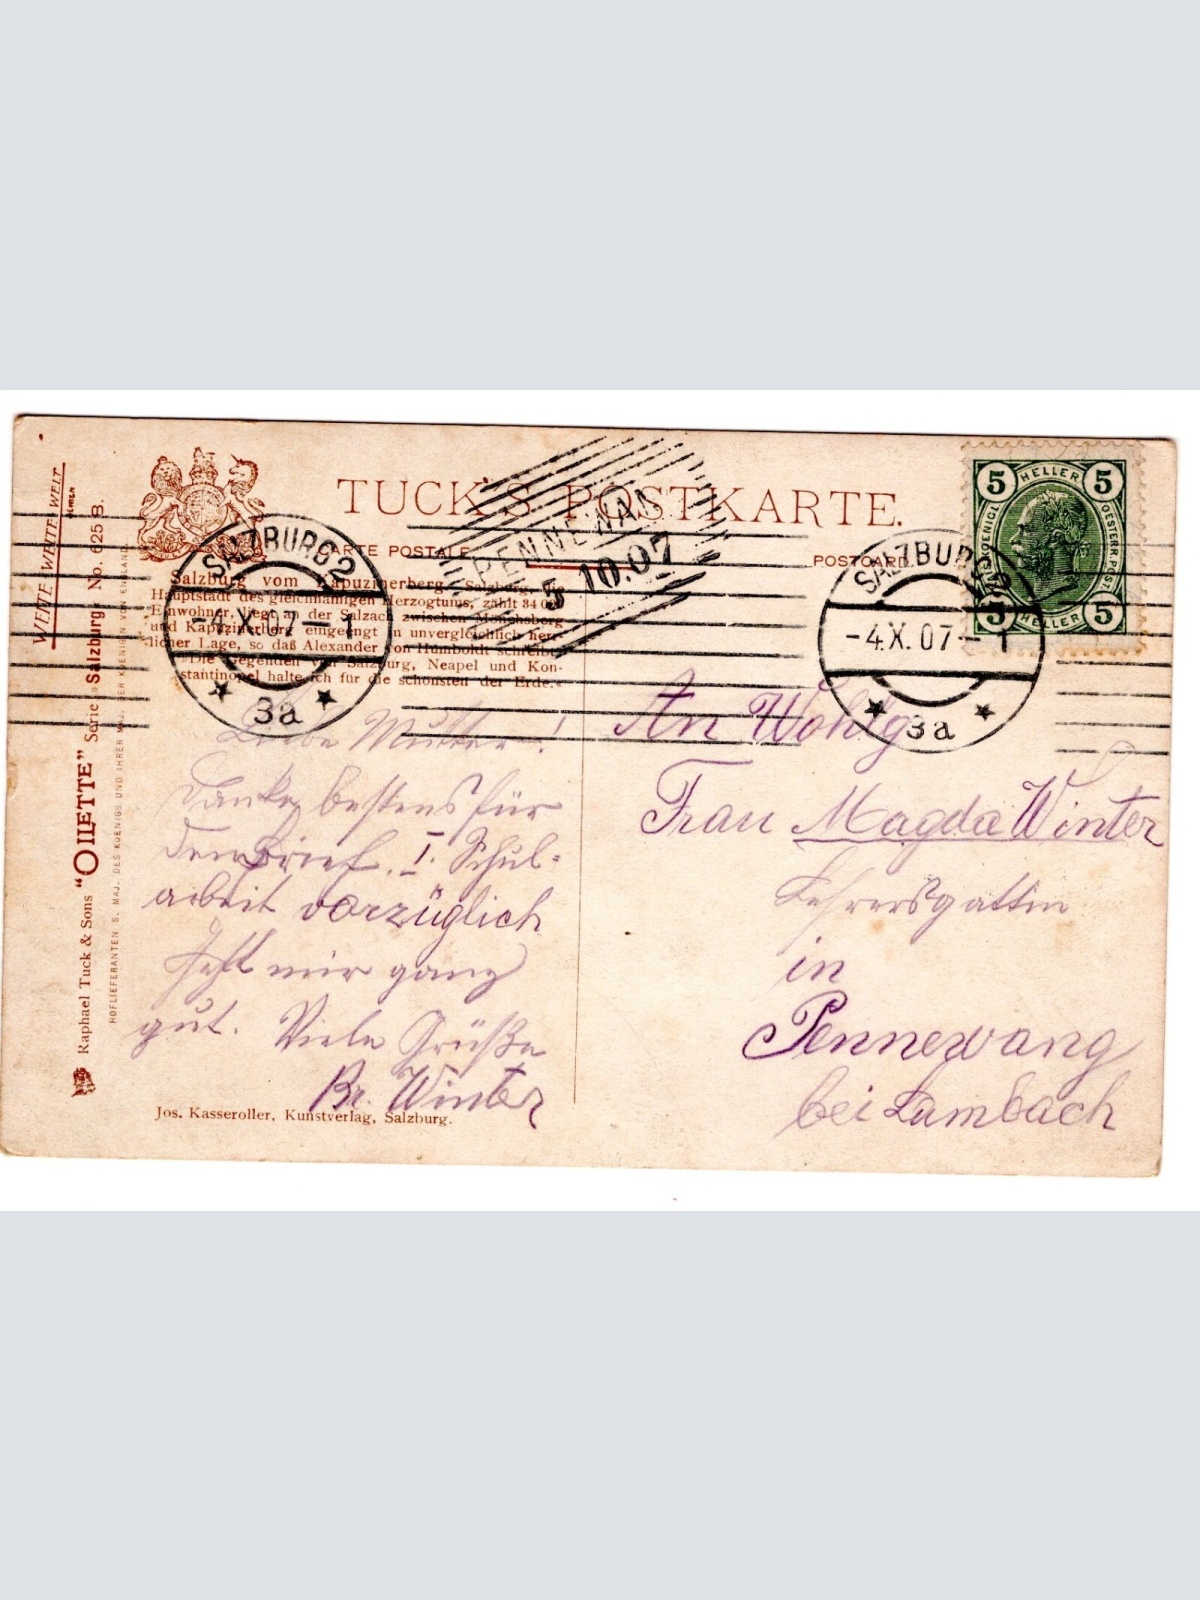 WEITE WEITE WELT
TUCK'S POSTKARTE.
CARTE POSTALE
POSTCARD
Salzburg vom Kapuzinerberg. Salzburg, die
Hauptstadt des gleichnamigen Herzogtums, zählt 34 000
Einwohner, liegt an der Salzach zwischen Mönchsberg
und Kapuzinerberg eingeengt in unvergleichlich herr-
licher Lage, so daß Alexander von Humboldt schreibt:
»Die Gegenden von Salzburg, Neapel und Kon-
stantinopel halte ich für die schönsten der Erde.«
SALZBURG 2
-4.X.07-1
3a
PENNEWANG
5 10.07
SALZBURG 2
-4.X.07-1
3a
5 HELLER 5
KAIS. KOENIGL. OESTERR. POST
5 HELLER 5
Liebe Mutter!
Danke bestens für
den Brief. I. Schul-
arbeit vorzüglich
Geht mir ganz
gut. Viele Grüße
Winter
An Wohlg
Frau Magda Winter
Lehrersgattin
in
Pennewang
bei Lambach
Jos. Kasseroller, Kunstverlag, Salzburg.
Raphael Tuck & Sons "OILETTE" Serie »Salzburg« No. 625 B.
HOFLIEFERANTEN S. MAJ. DES KOENIGS UND IHRER MAJ. DER KOENIGIN VON ENGLAND.